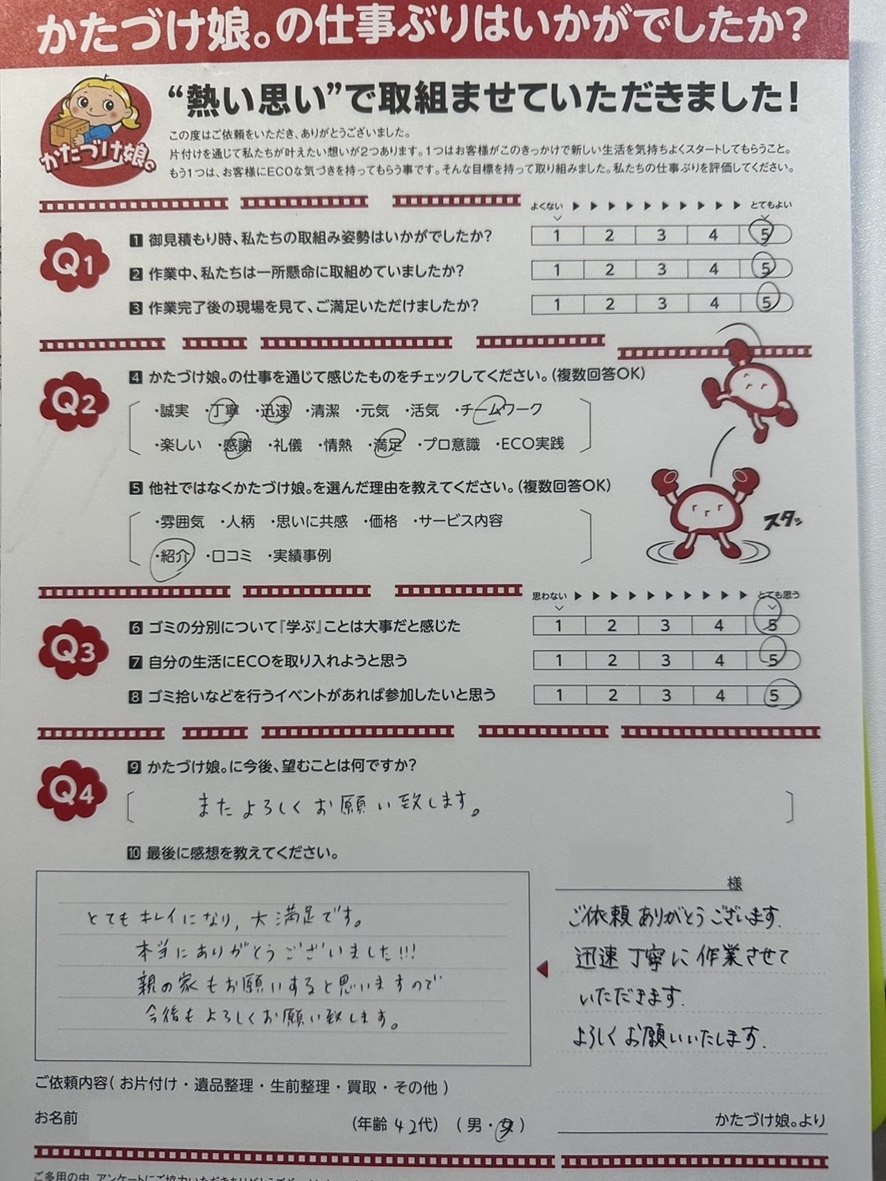 かたづけ娘。の仕事ぶりはいかがでしたか?
かたづけ娘。
“熱い思い”で取組ませていただきました!
この度はご依頼をいただき、ありがとうございました。
片付けを通じて私たちが叶えたい想いが2つあります。1つはお客様がこのきっかけで新しい生活を気持ちよくスタートしてもらうこと。
もう1つは、お客様にECOな気づきを持ってもらう事です。そんな目標を持って取り組みました。私たちの仕事ぶりを評価してください。
よくない ▶ ▶ ▶ ▶ ▶ ▶ ▶ ▶ ▶ ▶ とてもよい
Q1
1 御見積もり時、私たちの取組み姿勢はいかがでしたか? 1 2 3 4 5
2 作業中、私たちは一所懸命に取組めていましたか? 1 2 3 4 5
3 作業完了後の現場を見て、ご満足いただけましたか? 1 2 3 4 5
Q2
4 かたづけ娘。の仕事を通じて感じたものをチェックしてください。(複数回答OK)
・誠実 ・丁寧 ・迅速 ・清潔 ・元気 ・活気 ・チームワーク
・楽しい ・感謝 ・礼儀 ・情熱 ・満足 ・プロ意識 ・ECO実践
5 他社ではなくかたづけ娘。を選んだ理由を教えてください。(複数回答OK)
・雰囲気 ・人柄 ・思いに共感 ・価格 ・サービス内容
・紹介 ・口コミ ・実績事例
スタッ
思わない ▶ ▶ ▶ ▶ ▶ ▶ ▶ ▶ ▶ ▶ とても思う
Q3
6 ゴミの分別について『学ぶ』ことは大事だと感じた 1 2 3 4 5
7 自分の生活にECOを取り入れようと思う 1 2 3 4 5
8 ゴミ拾いなどを行うイベントがあれば参加したいと思う 1 2 3 4 5
Q4
9 かたづけ娘。に今後、望むことは何ですか?
またよろしくお願い致します。
10 最後に感想を教えてください。
とてもキレイになり、大満足です。
本当にありがとうございました!!!
親の家もお願いすると思いますので
今後もよろしくお願い致します。
様
ご依頼ありがとうございます.
迅速丁寧に作業させて
いただきます.
よろしくお願いいたします.
かたづけ娘。より
ご依頼内容( お片付け・遺品整理・生前整理・買取・その他 )
お名前 (年齢 42代) ( 男・女 )